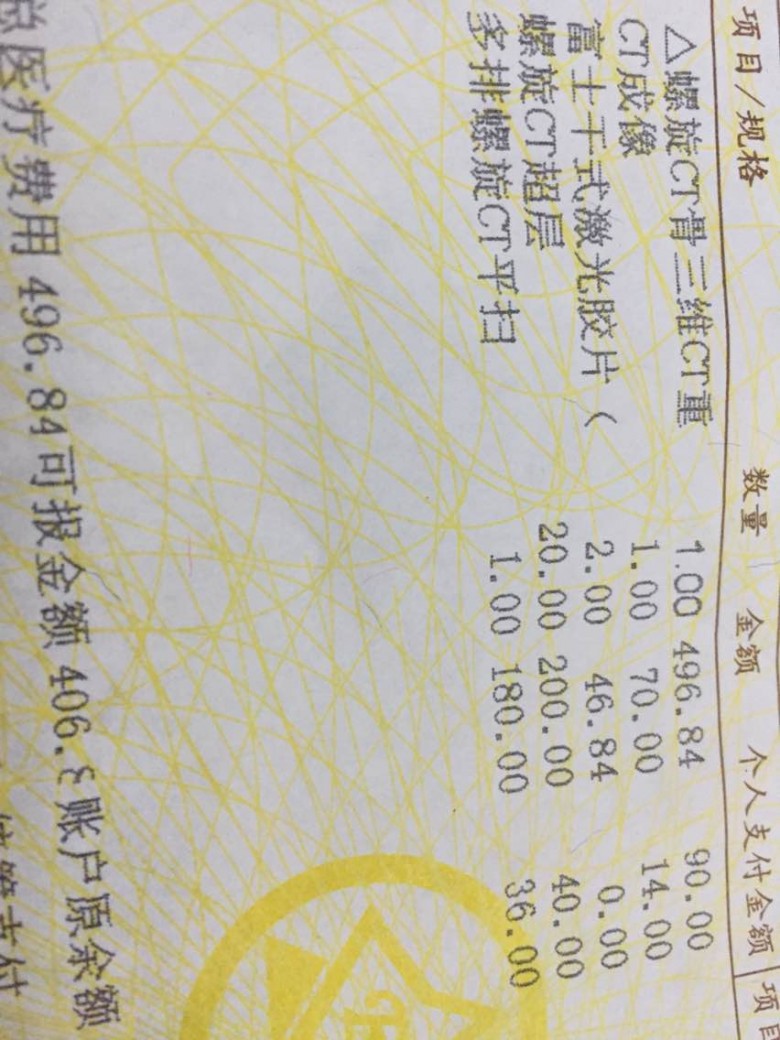 项目/规格 数量 金额 个人支付金额 项目
△螺旋CT骨三维CT重 1.00 496.84 90.00
CT成像 1.00 70.00 14.00
富士干式激光胶片( 2.00 46.84 0.00
螺旋CT超层 20.00 200.00 40.00
多排螺旋CT平扫 1.00 180.00 36.00
总医疗费用 496.84可报金额 406.8账户原余额